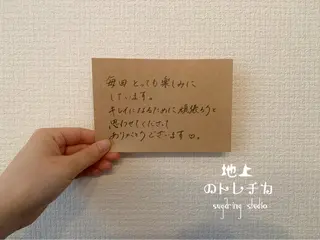 毎回とっても楽しみに
しています。
キレイになるために頑張ろうと
思わせてくださって
ありがとうございます
地上
のトレチカ
sugaring studio